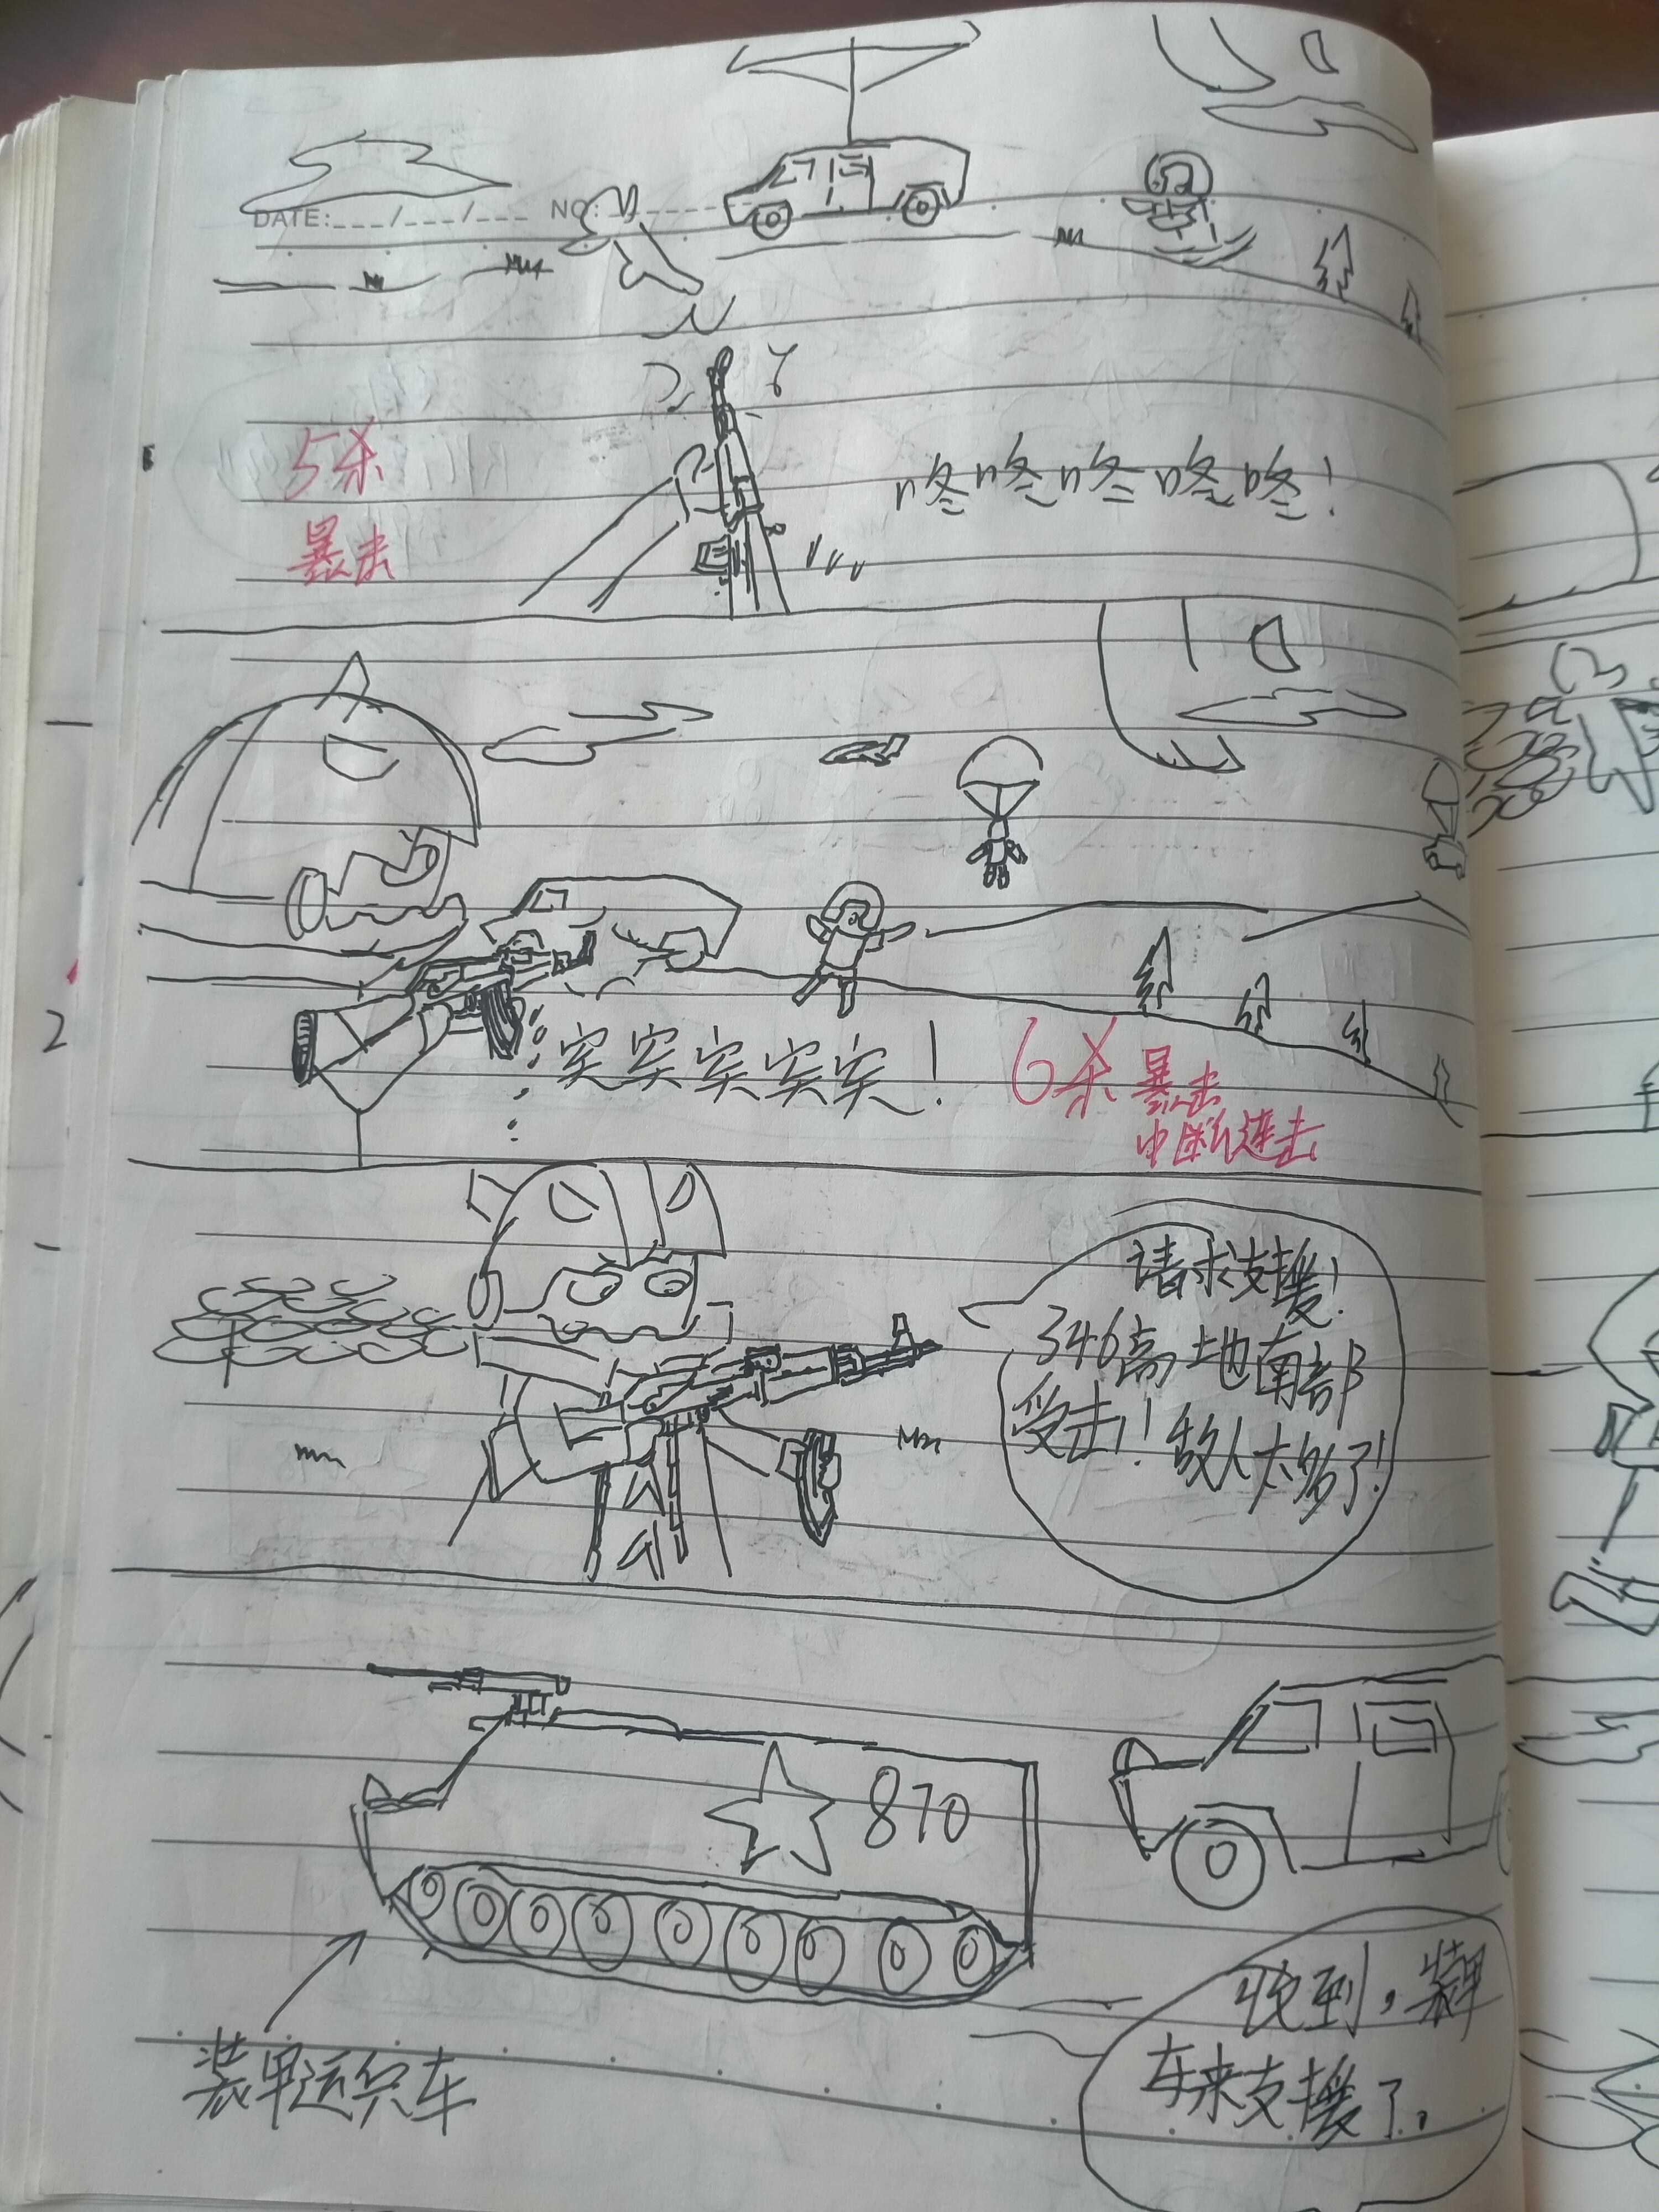 DATE:___/___/___ NO:
5杀
暴击
咚咚咚咚咚!
突突突突突!
6杀 暴击
中断连击
请求支援!
346高地南部
受击!! 敌人太多了!
870
收到，装甲
车来支援了。
装甲运兵车
2